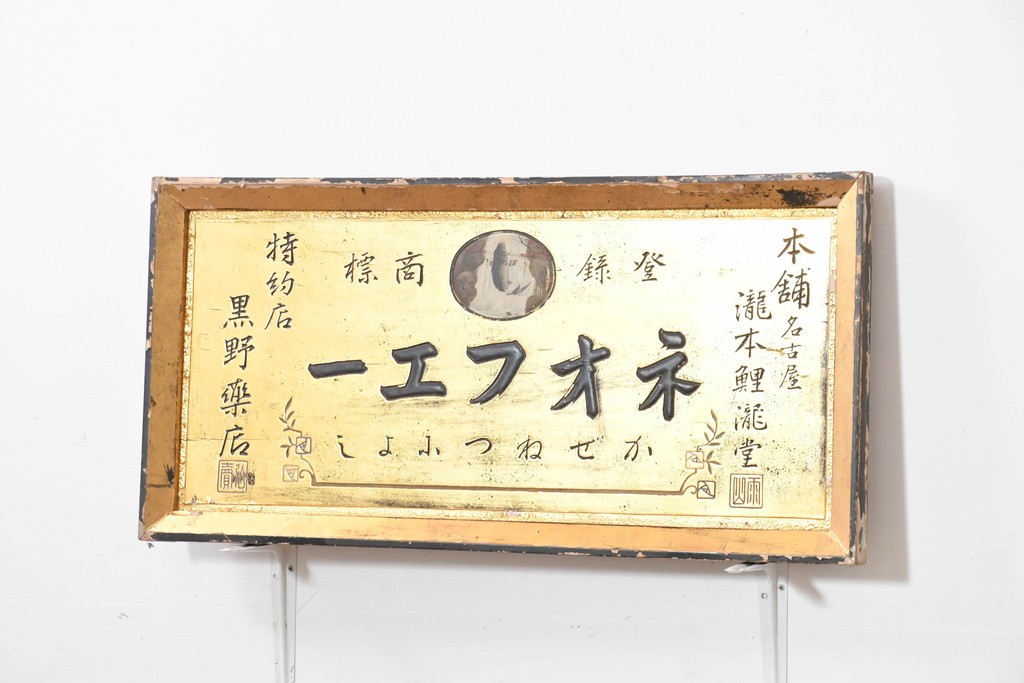 本舗 名古屋
瀧本鯉瀧堂
登録商標
ネオフエー
かぜねつによし
特約店
黒野藥店